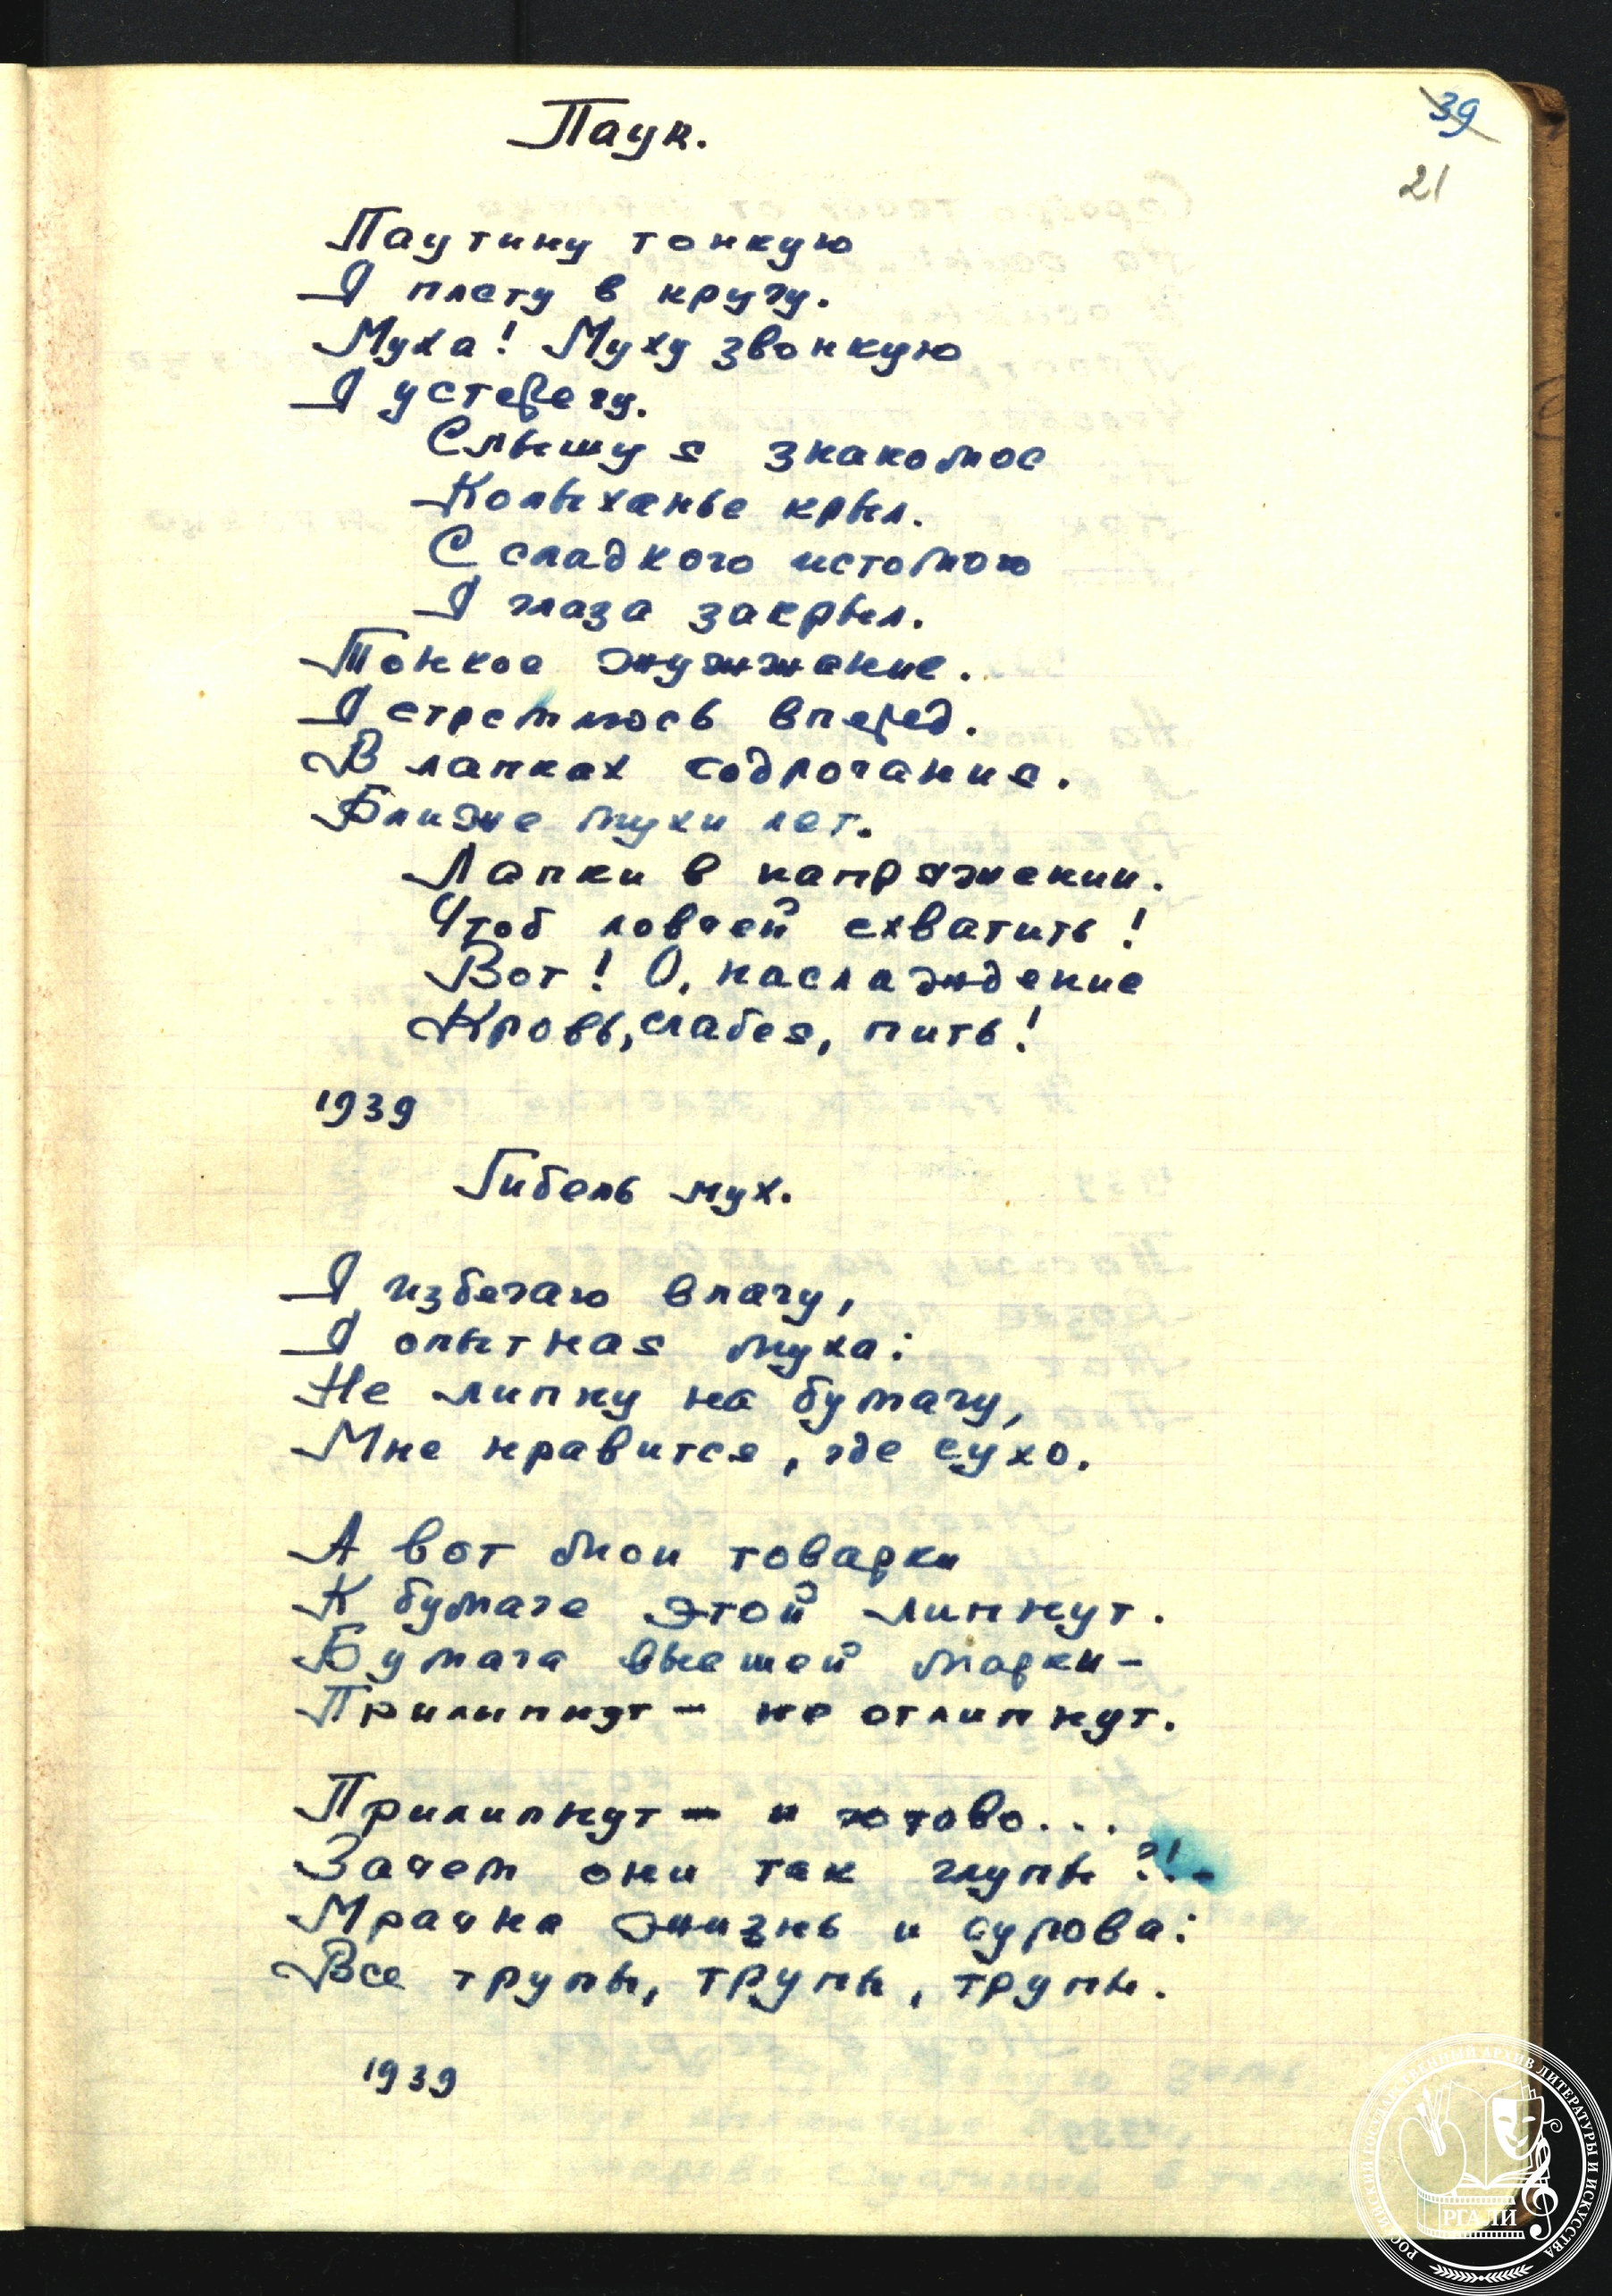 39
21
Паук.
Паутину тонкую
Я плету в кругу.
Муха! Муху звонкую
Я устерегу.
Слышу я знакомое
Колыханье крыл.
С сладкого истомою
Я глаза закрыл.
Тонкое жужжание.
Я стремлюсь вперед.
В лапках содрогание.
Ближе мухи лет.
Лапки в напряжении.
Чтоб ловчей схватить!
Вот! О, наслаждение
Кровь, слабея, пить!
1939
Гибель мух.
Я избегаю влагу,
Я опытная муха:
Не липну на бумагу,
Мне нравится, где сухо.
А вот мои товарки
К бумаге этой липнут.
Бумага высшей марки –
Прилипнут – не отлипнут.
Прилипнут – и готово...
Зачем они так глупы?! –
Мрачна жизнь и сурова:
Все трупы, трупы, трупы.
1939
РОССИЙСКИЙ ГОСУДАРСТВЕННЫЙ АРХИВ ЛИТЕРАТУРЫ И ИСКУССТВА
РГАЛИ